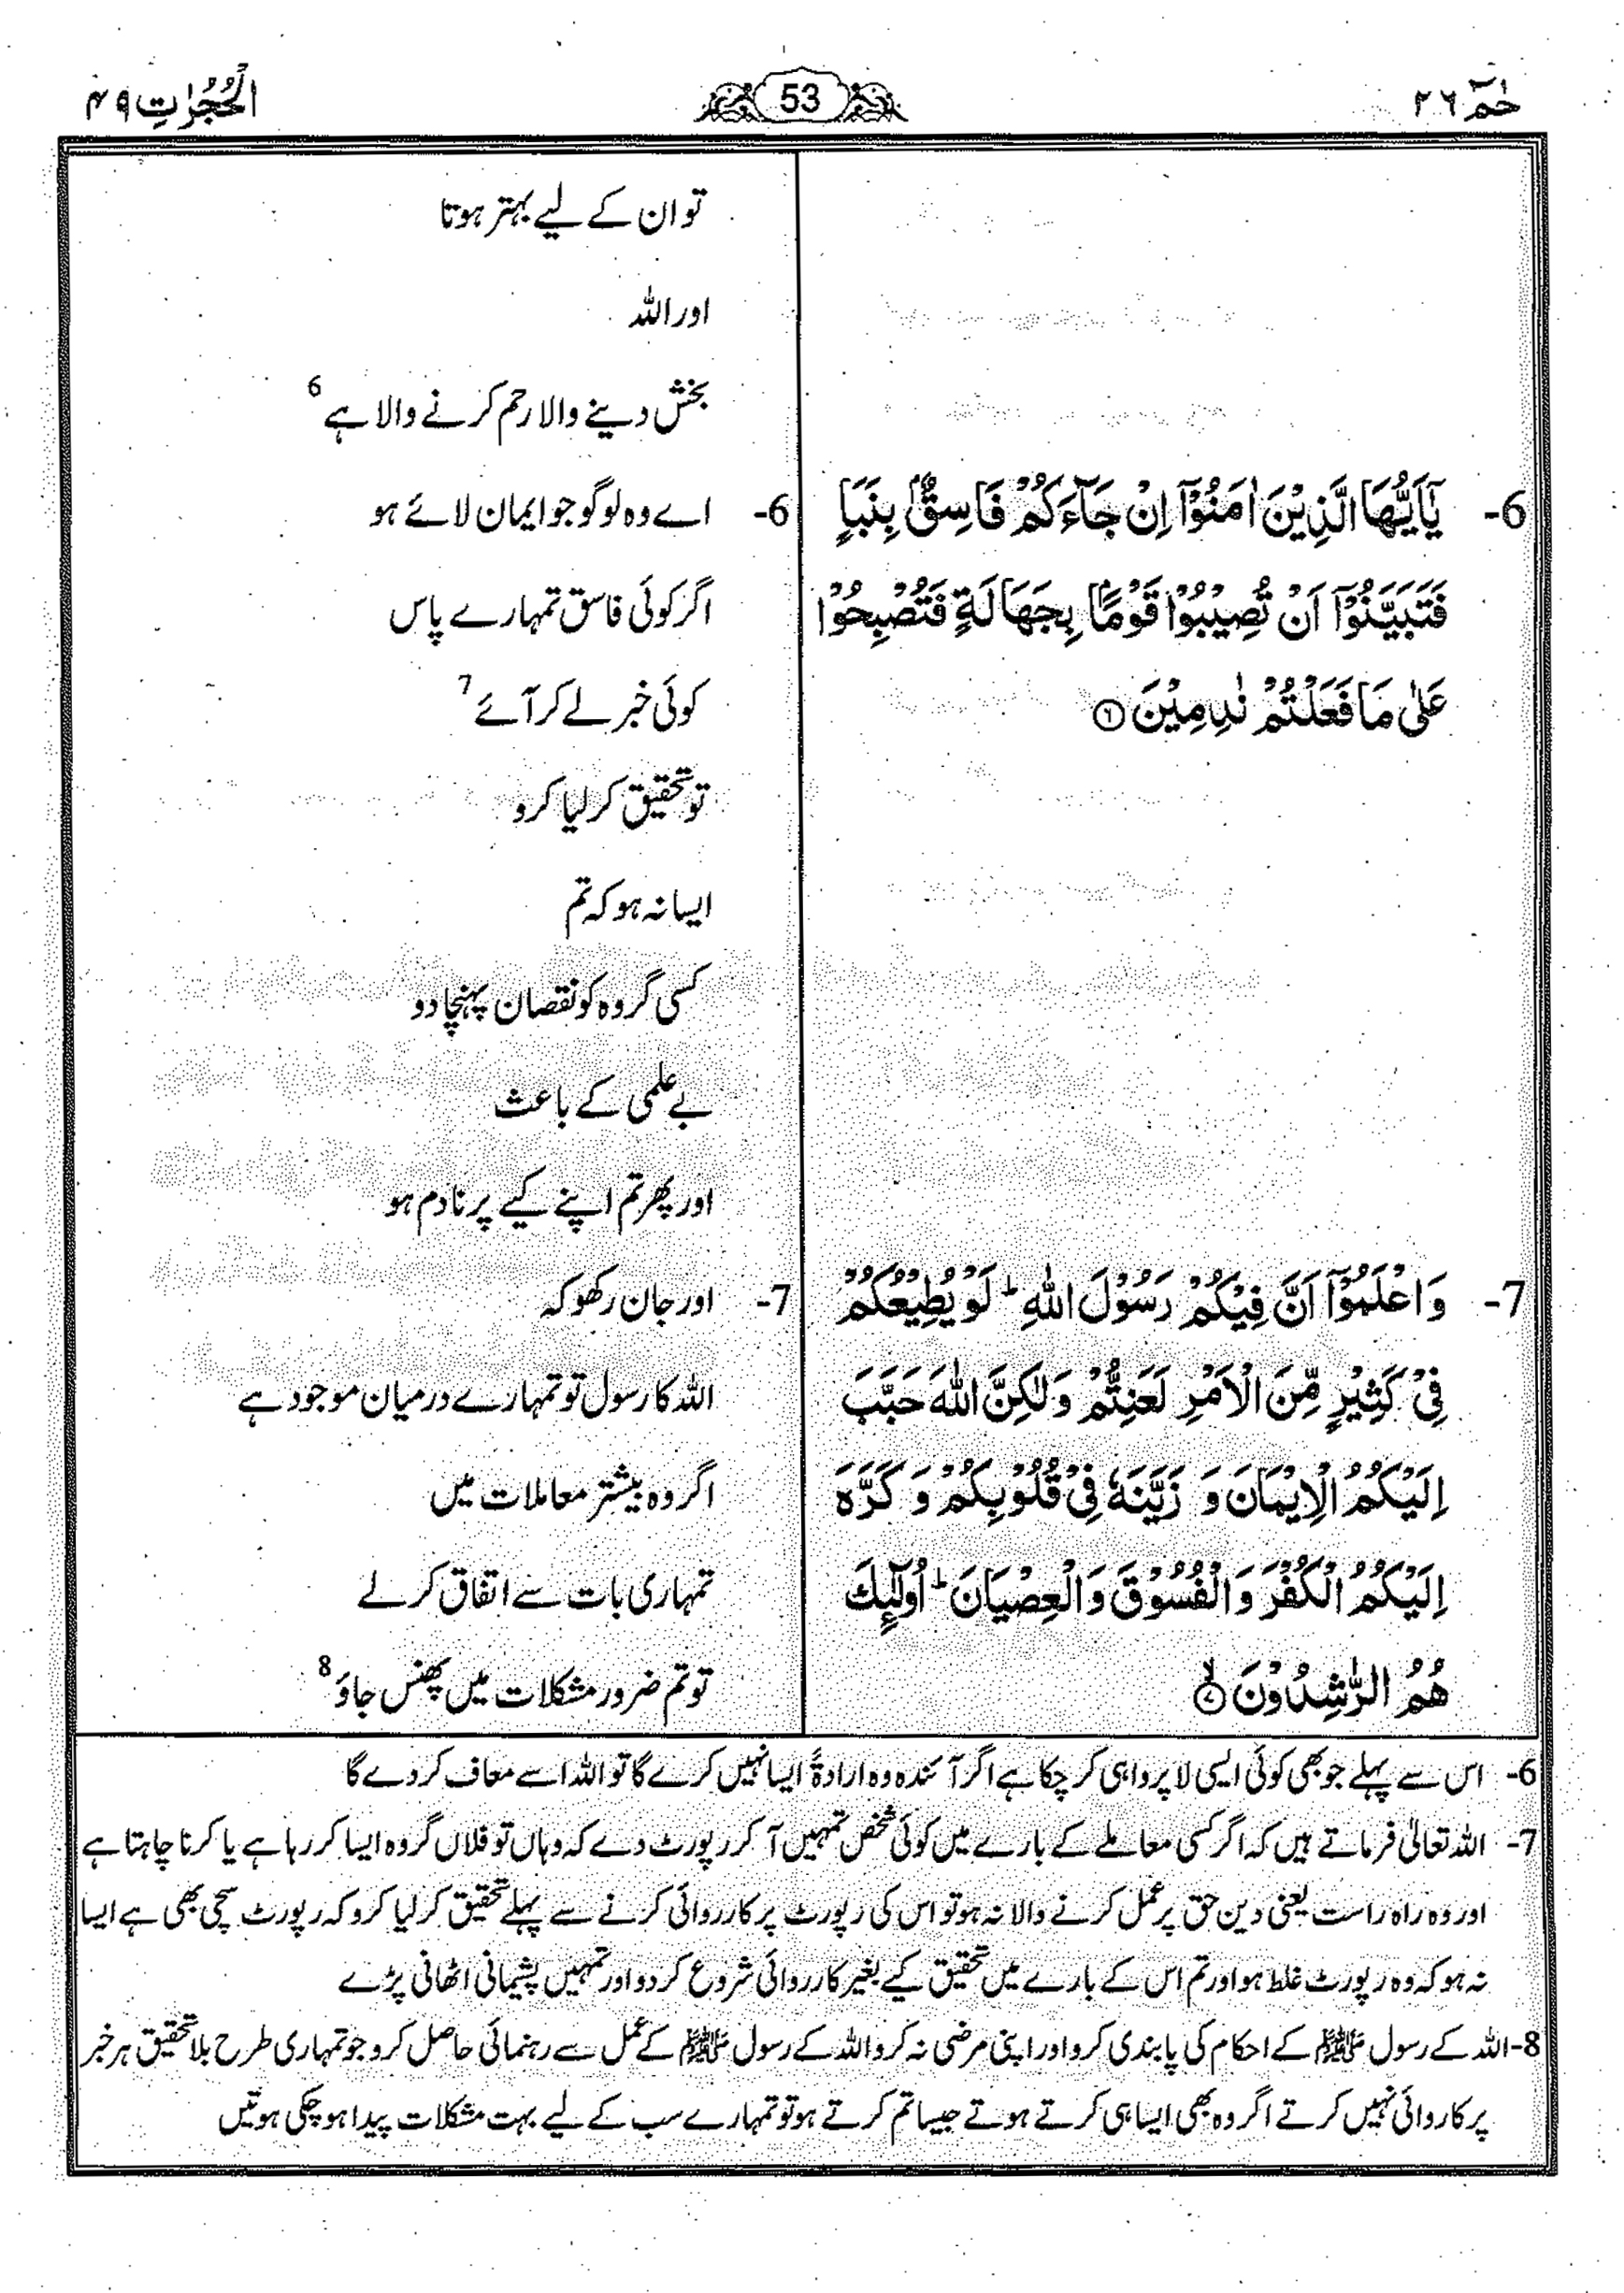 حٰمٓ ٢٦
53
الْحُجُرٰتِ ٤٩
تو ان کے لیے بہتر ہوتا
اور اللہ
بخش دینے والا رحم کرنے والا ہے 6
6- يٰٓاَيُّهَا الَّذِيْنَ اٰمَنُوْٓا اِنْ جَآءَكُمْ فَاسِقٌۢ بِنَبَاٍ
فَتَبَيَّنُوْٓا اَنْ تُصِيْبُوْا قَوْمًۢا بِجَهَالَةٍ فَتُصْبِحُوْا
عَلٰى مَا فَعَلْتُمْ نٰدِمِيْنَ ۝٦
6- اے وہ لوگو جو ایمان لائے ہو
اگر کوئی فاسق تمہارے پاس
کوئی خبر لے کر آئے 7
تو تحقیق کر لیا کرو
ایسا نہ ہو کہ تم
کسی گروہ کو نقصان پہنچا دو
بے علمی کے باعث
اور پھر تم اپنے کیے پر نادم ہو
7- وَاعْلَمُوْٓا اَنَّ فِيْكُمْ رَسُوْلَ اللّٰهِ ؕ لَوْ يُطِيْعُكُمْ
فِيْ كَثِيْرٍ مِّنَ الْاَمْرِ لَعَنِتُّمْ وَلٰكِنَّ اللّٰهَ حَبَّبَ
اِلَيْكُمُ الْاِيْمَانَ وَ زَيَّنَهٗ فِيْ قُلُوْبِكُمْ وَ كَرَّهَ
اِلَيْكُمُ الْكُفْرَ وَالْفُسُوْقَ وَالْعِصْيَانَ ؕ اُولٰٓئِكَ
هُمُ الرّٰشِدُوْنَ ۝٧ۙ
7- اور جان رکھو کہ
اللہ کا رسول تو تمہارے درمیان موجود ہے
اگر وہ بیشتر معاملات میں
تمہاری بات سے اتفاق کر لے
تو تم ضرور مشکلات میں پھنس جاؤ 8
6- اس سے پہلے جو بھی کوئی ایسی لاپرواہی کر چکا ہے اگر آئندہ وہ ارادۃً ایسا نہیں کرے گا تو اللہ اسے معاف کر دے گا
7- اللہ تعالیٰ فرماتے ہیں کہ اگر کسی معاملے کے بارے میں کوئی شخص تمہیں آ کر رپورٹ دے کہ وہاں تو فلاں گروہ ایسا کر رہا ہے یا کرنا چاہتا ہے
اور وہ راہ راست یعنی دین حق پر عمل کرنے والا نہ ہو تو اس کی رپورٹ پر کارروائی کرنے سے پہلے تحقیق کر لیا کرو کہ رپورٹ سچی بھی ہے ایسا
نہ ہو کہ وہ رپورٹ غلط ہو اور تم اس کے بارے میں تحقیق کیے بغیر کارروائی شروع کر دو اور تمہیں پشیمانی اٹھانی پڑے
8- اللہ کے رسول ﷺ کے احکام کی پابندی کرو اور اپنی مرضی نہ کرو اللہ کے رسول ﷺ کے عمل سے رہنمائی حاصل کرو جو تمہاری طرح بلا تحقیق ہر خبر
پر کاروائی نہیں کرتے اگر وہ بھی ایسا ہی کرتے ہوتے جیسا تم کرتے ہو تو تمہارے سب کے لیے بہت مشکلات پیدا ہو چکی ہوتیں